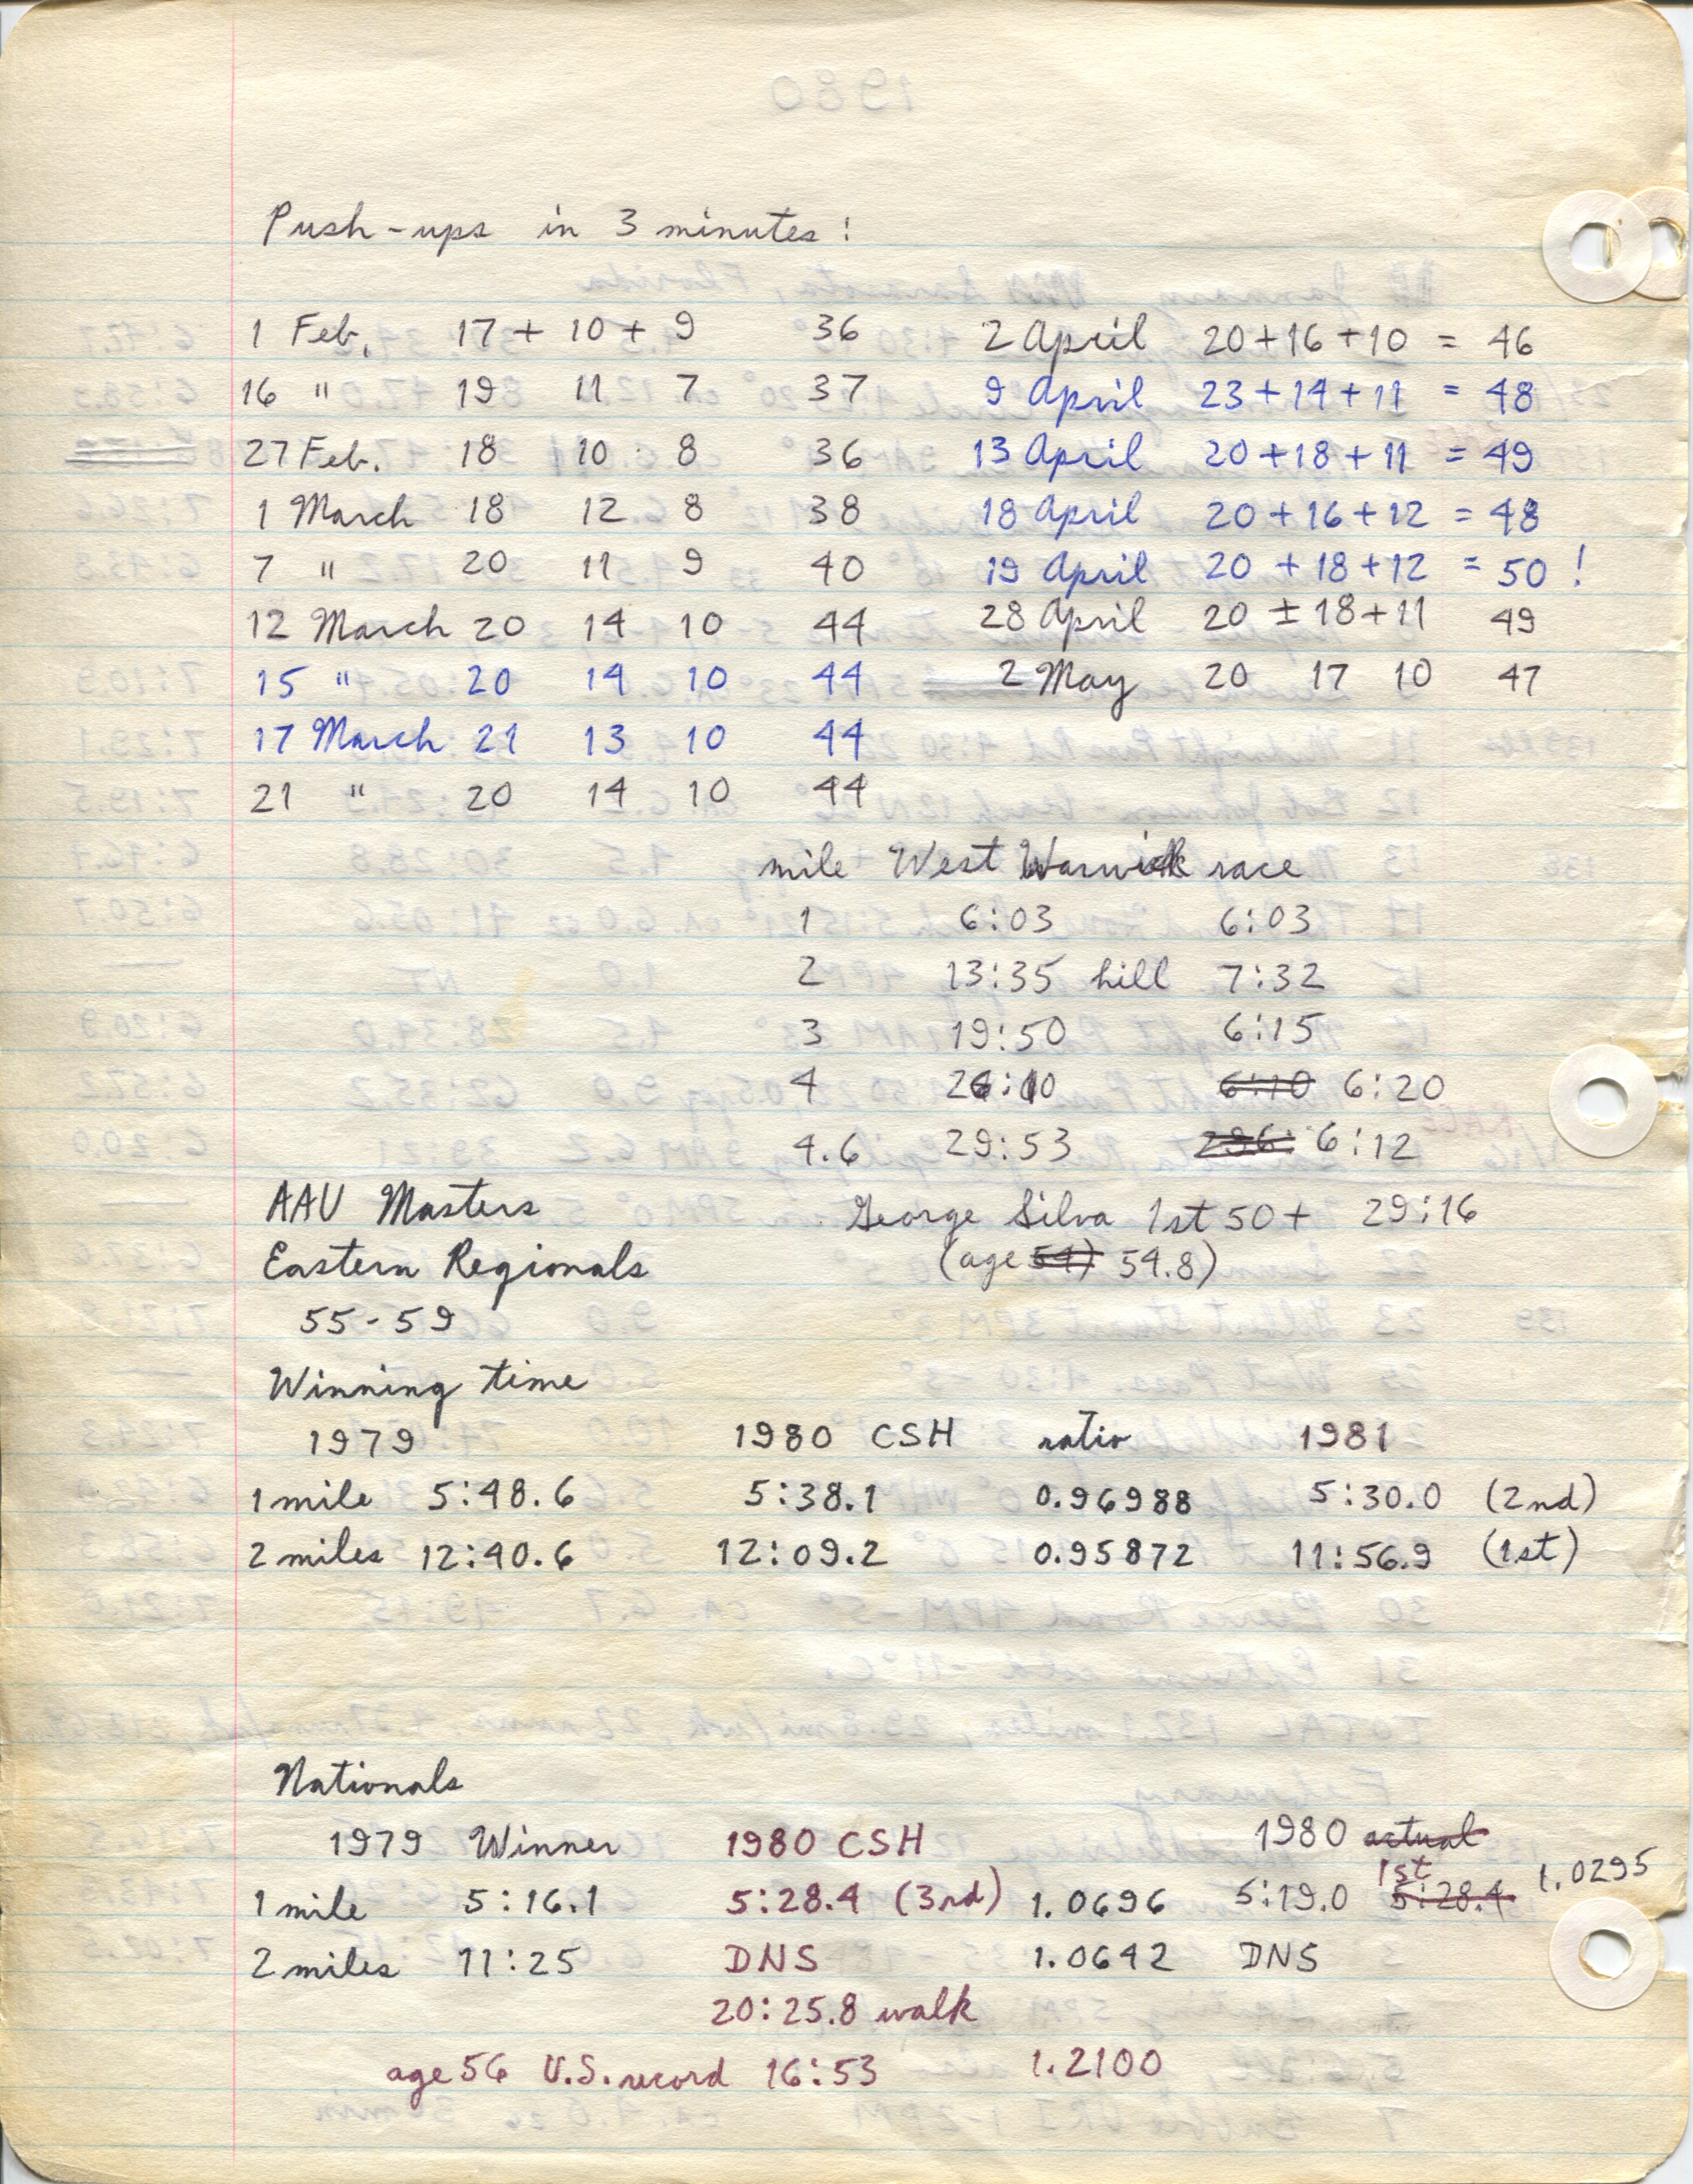 Push-ups in 3 minutes:
1 Feb. 17 + 10 + 9 36
16 " 19 11 7 37
27 Feb. 18 10 8 36
1 March 18 12 8 38
7 " 20 11 9 40
12 March 20 14 10 44
15 " 20 14 10 44
17 March 21 13 10 44
21 " 20 14 10 44
2 April 20+16+10 = 46
9 April 23+14+11 = 48
13 April 20+18+11 = 49
18 April 20+16+12 = 48
19 April 20+18+12 = 50!
28 April 20 ± 18+11 49
2 May 20 17 10 47
mile West Warwick race
1 6:03 6:03
2 13:35 hill 7:32
3 19:50 6:15
4 26:10 6:10 6:20
4.6 29:53 6:12
George Silva 1st 50+ 29:16
(age 54) 54.8)
AAU Masters
Eastern Regionals
55-59
Winning time
1979 1980 CSH ratio 1981
1 mile 5:48.6 5:38.1 0.96988 5:30.0 (2nd)
2 miles 12:40.6 12:09.2 0.95872 11:56.9 (1st)
Nationals
1979 Winner 1980 CSH 1980 actual
1st
1 mile 5:16.1 5:28.4 (3rd) 1.0696 5:19.0 5:28.4 1.0295
2 miles 11:25 DNS 1.0642 DNS
20:25.8 walk
age 56 U.S. record 16:53 1.2100